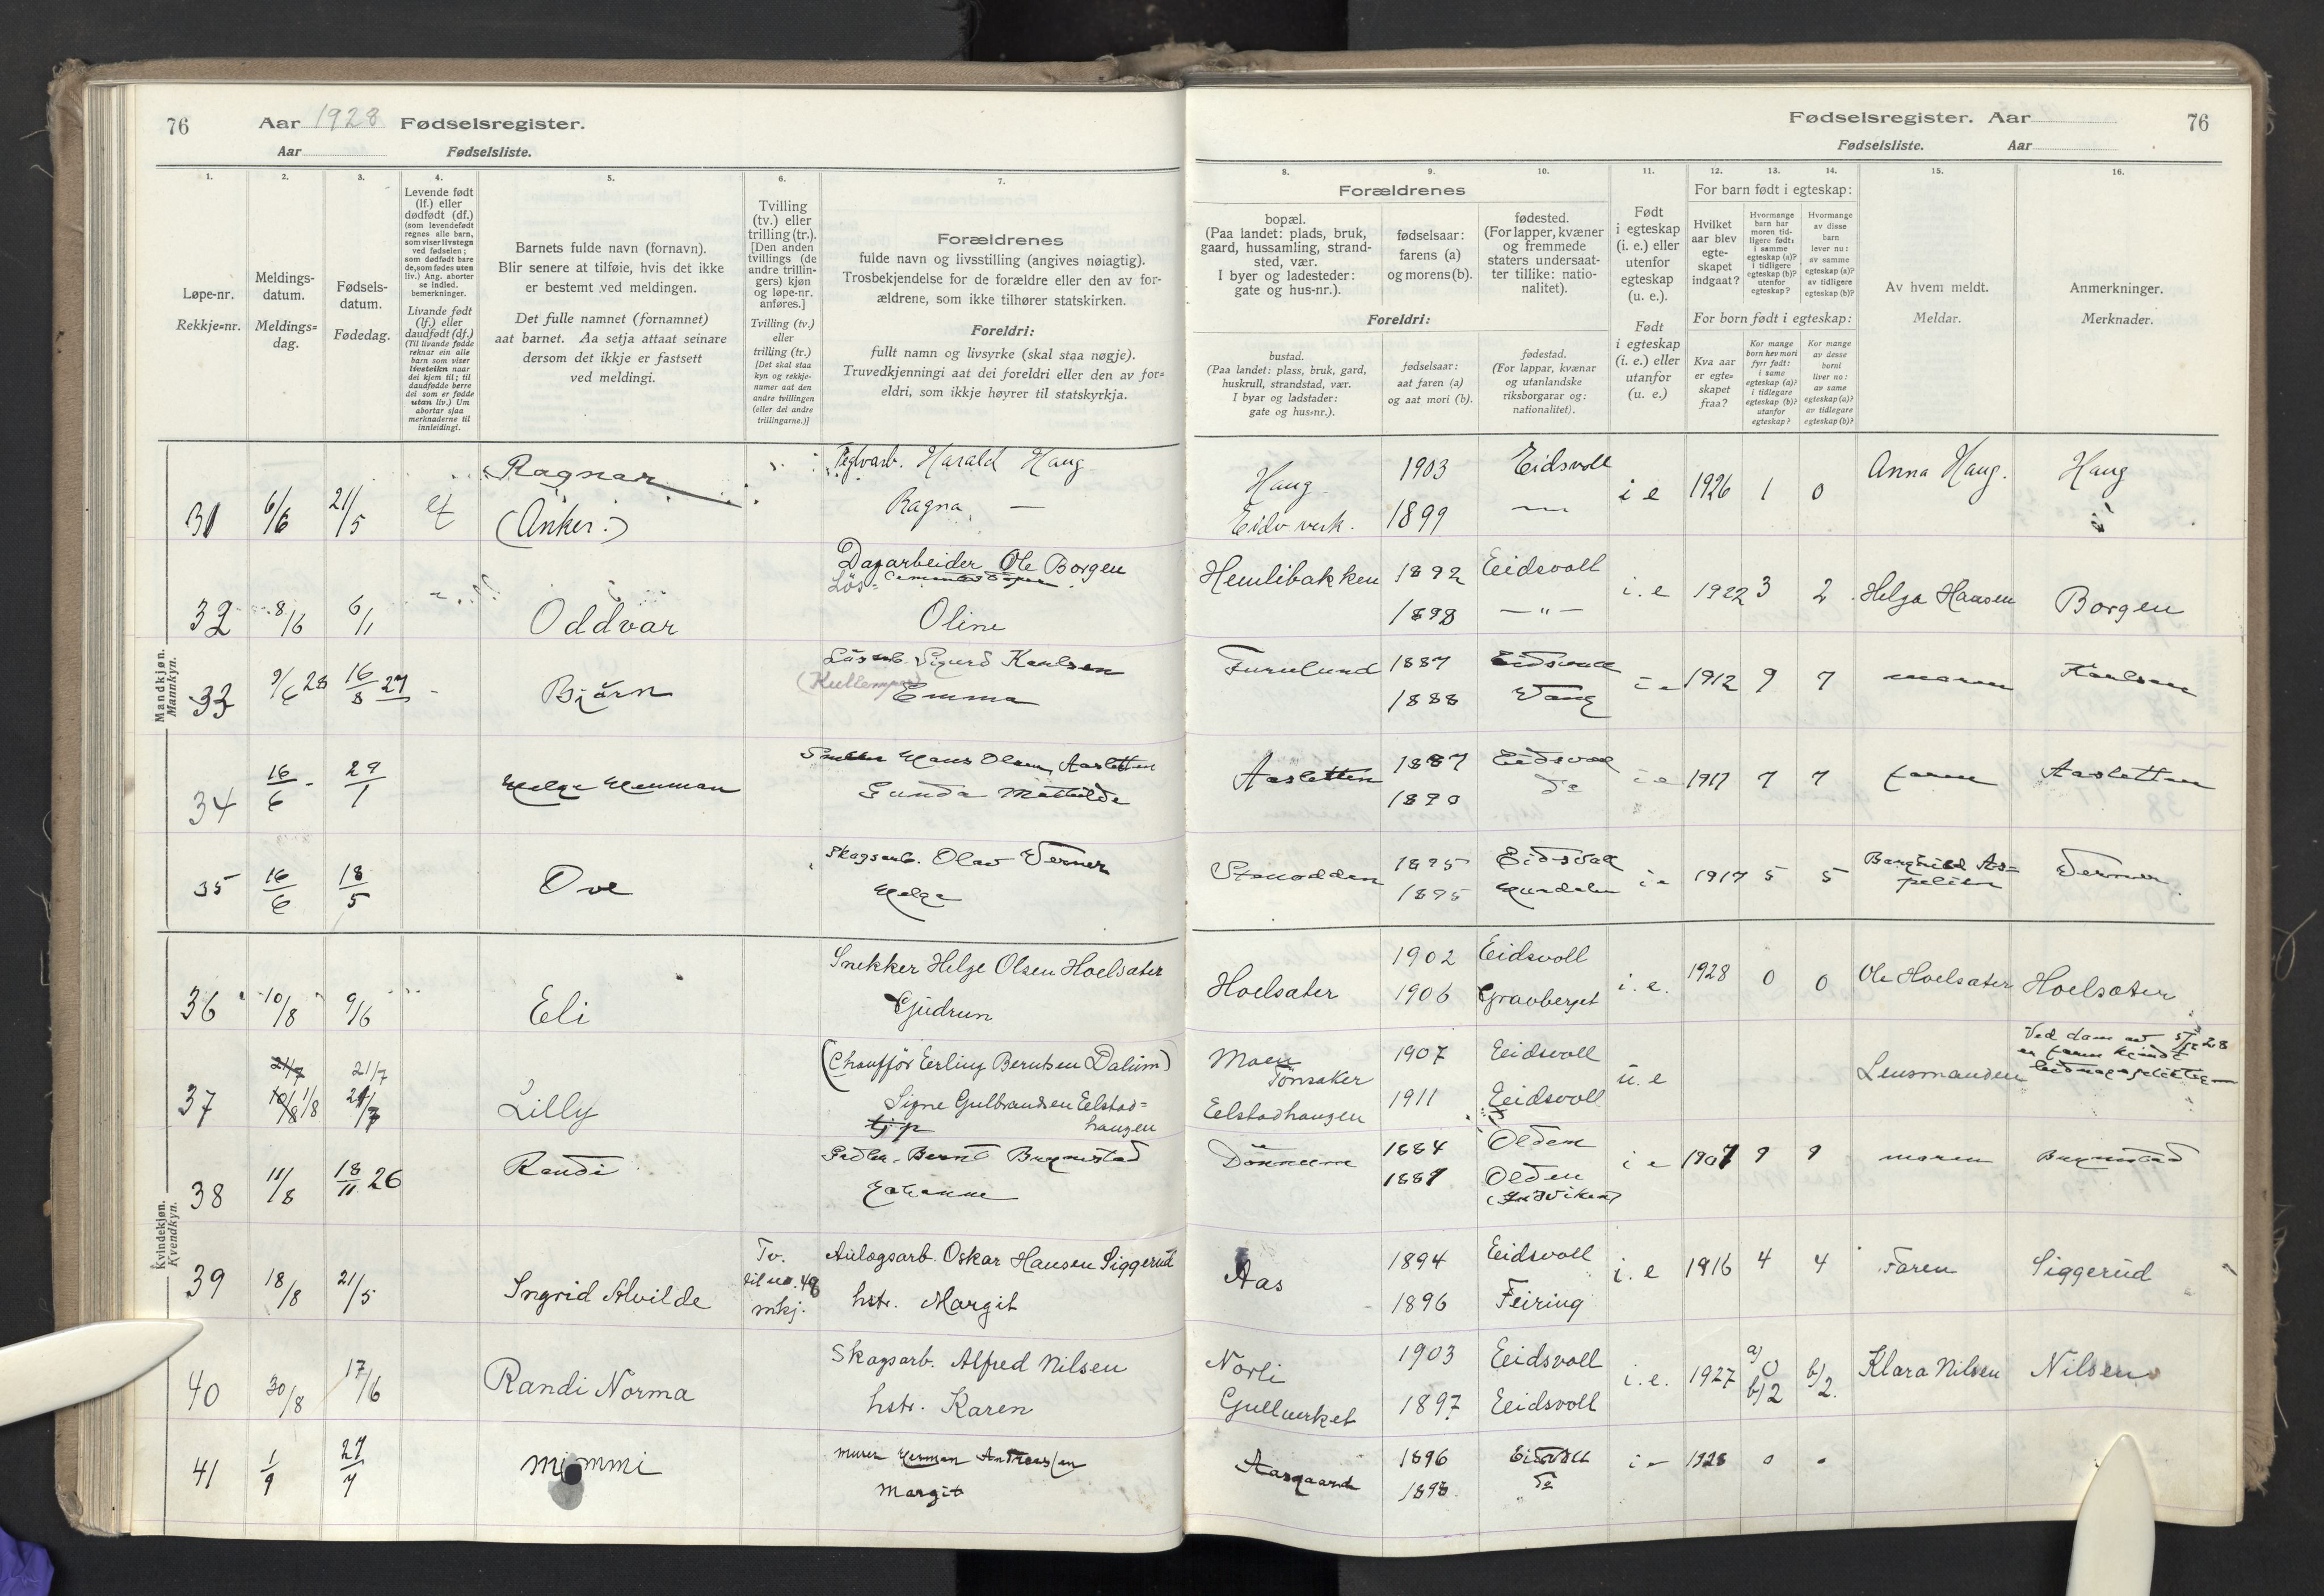 76 Aar 1928 Fødselsregister.
Aar Fødselsliste.
1. 2. 3. 4. 5. 6. 7.
Løpe-nr.
Rekkje=nr.
Meldings-
datum.
Meldings=
dag.
Fødsels-
datum.
Fødedag.
Levende født
(lf.) eller
dødfødt (df.)
(som levendefødt
regnes alle barn,
som viser livstegn
ved fødselen;
som dødfødt bare
de, som fødes uten
liv.) Ang. aborter
se indled.
bemerkninger.
Livande født
(lf.) eller
daudfødt (df.)
(Til livande fødde
reknar ein alle
barn som viser
livsteikn naar
dei kjem til; til
daudfødde berre
dei som er fødde
utan liv.) Um
abortar sjaa
merknaderne til
innleidingi.
Barnets fulde navn (fornavn).
Blir senere at tilføie, hvis det ikke
er bestemt ved meldingen.
Det fulle namnet (fornamnet)
aat barnet. Aa setja attaat seinare
dersom det ikkje er fastsett
ved meldingi.
Tvilling
(tv.) eller
trilling (tr.).
[Den anden
tvillings (de
andre trillin-
gers) kjøn
og løpe-nr.
anføres.]
Tvilling (tv.)
eller
trilling (tr.)
[Det skal staa
kyn og rekkje-
numer aat den
andre tvillingen
(eller dei andre
trillingarne.)]
Forældrenes
fulde navn og livsstilling (angives nøiagtig).
Trosbekjendelse for de forældre eller den av for-
ældrene, som ikke tilhører statskirken.
Foreldri:
fullt namn og livsyrke (skal staa nøgje).
Truvedkjenningi aat dei foreldri eller den av for=
eldri, som ikkje høyrer til statskyrkja.
Mandkjøn.
Mannkyn.
31 6/6 21/5 Ragnar
(Anker.)
Harald Haug
Ragna —
32 8/6 6/1 Oddvar
Dagarbeider Ole Borgen
Oline
33 9/6 28 16/8 27 Bjørn
Sigurd Karlsen
Emma
34 16/6 29/1
Hans Olsen Aasletten
Gunda Mathilde
35 16/6 18/5 Ove
Skogsarb. Olav Verner
Helga
Kvindekjøn.
Kvendkyn.
36 10/8 9/6 Eli
Snekker Helge Olsen Hoelsæter
Gudrun
37 21/7 1/8 21/7 Lilly
(Chauffør Erling Berntsen Dalum)
Signe Gulbrandsen Eelstad=
haugen
38 11/8 18/11 26 Randi
Johanne
39 18/8 21/5 Ingrid Alvilde
Tv.
til no. 48
mkj.
Anlægsarb. Oskar Hansen Siggerud
hstr. Margit
40 30/8 17/6 Randi Norma
Skogsarb. Alfred Nilsen
hstr. Karen
41 1/9 27/7 Mimmi
Murer Herman Andreassen
Margit
Fødselsregister. Aar 76
Fødselsliste. Aar
8. 9. 10. 11. 12. 13. 14. 15. 16.
Forældrenes
bopæl.
(Paa landet: plads, bruk,
gaard, hussamling, strand-
sted, vær.
I byer og ladesteder:
gate og hus-nr.).
fødselsaar:
farens (a)
og morens (b).
fødested.
(For lapper, kvæner
og fremmede
staters undersaat-
ter tillike: natio-
nalitet).
Foreldri:
bustad.
(Paa landet: plass, bruk, gard,
huskrull, strandstad, vær.
I byar og ladstader:
gate og hus=nr.).
fødselsaar:
aat faren (a)
og aat mori (b).
fødestad.
(For lappar, kvænar
og utanlandske
riksborgarar og:
nationalitet).
Født
i egteskap
(i. e.) eller
utenfor
egteskap
(u. e.).
Født
i egteskap
(i. e.) eller
utanfor
(u. e.)
For barn født i egteskap:
Hvilket
aar blev
egte-
skapet
indgaat?
Hvormange
barn har
moren tid-
ligere født:
i samme
egteskap (a)?
i tidligere
egteskap (b)?
utenfor
egteskap?
Hvormange
av disse
barn
lever nu:
av samme
egteskap (a)?
av tidligere
egteskap (b)?
For born født i egteskap:
Kva aar
er egte=
skapet
fraa?
Kor mange
born hev mori
fyrr født:
i same
egteskap (a)?
i tidlegare
egteskap (b)?
utanfor
egteskap?
Kor mange
av desse
borni
liver no:
av same
egteskap (a)?
av tidlegare
egteskap (b)?
Av hvem meldt.
Meldar.
Anmerkninger.
Merknader.
Haug 1903 Eidsvoll i e 1926 1 0 Anna Haug. Haug
Eidsv verk. 1899
Hemlibakken 1892 Eidsvoll i. e 1922 3 2 Helga Hansen Borgen
1898 — " —
Furulund 1887 Eidsvoll i e 1912 9 7 moren Karlsen
1888 Vang
Aasletten 1887 Eidsvoll i e 1917 7 7 faren Aasletten
1890 do
1895 Eidsvoll i e 1917 5 5 Verner
1895
Hoelsæter 1902 Eidsvoll i. e. 1928 0 0 Ole Hoelsæter Hoelsæter
1906 Gravberget
Moen 1907 Eidsvoll u. e Lensmanden
Tønsaker
Ved dom av 5/12 28
er faren kjendt
Eelstadhaugen 1911 Eidsvoll
1884 Olden i e 1907 9 9 moren
1887 Olden
Aas 1894 Eidsvoll i. e 1916 4 4 Faren Siggerud
1896 Feiring
Norli 1903 Eidsvoll i. e. 1927 a) 0 b) 2 b) 2. Klara Nilsen Nilsen
Gullverket 1897 Eidsvoll
Aasgaard 1896 Eidsvoll i e 1928 0 0
1898 do